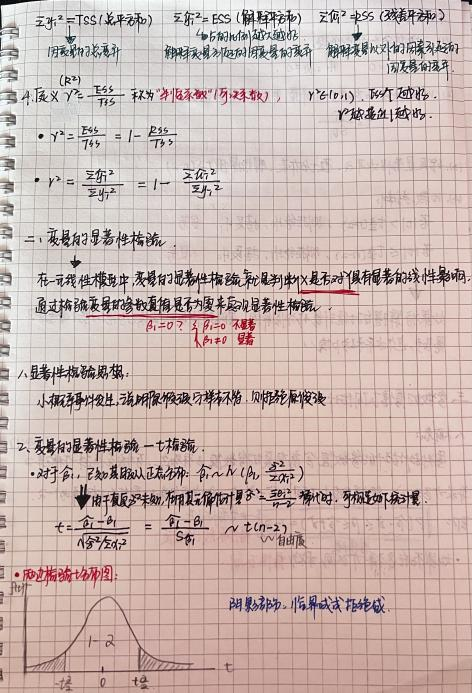 Σyi² = TSS (总平方和) Σŷi² = ESS (解释平方和) Σûi² = RSS (残差平方和)
占的比例越大越好
因变量的总离差 解释变量引起的因变量的离差 解释变量以外的因素引起的
因变量的离差.
(R²)
4.定义 r² = ESS/TSS 称为"判定系数"(可决系数), r²∈(0,1), ESS↑越好.
r²越接近1越好.
• r² = ESS/TSS = 1 - RSS/TSS
• r² = Σŷi²/Σyi² = 1 - Σûi²/Σyi²
二、变量的显著性检验.
在一元线性模型中,变量的显著性检验就是判断X是否对Y具有显著的线性影响.
通过检验变量的参数真值是否为零来实现显著性检验.
β1=0? { β1=0 不显著
β1≠0 显著
1.显著性检验思想:
小概率事件发生,说明原假设与样本不符,则拒绝原假设
2.变量的显著性检验—t检验.
•对于β̂1,已知其服从正态分布: β̂1~N(β1, σ²/Σxi²)
由于真实σ²未知,在用其无偏估计量σ̂²=Σei²/n-2 替代时,可构造如下统计量.
t = β̂1-β1/√σ̂²/Σxi² = β̂1-β1/Sβ̂1 ~ t(n-2)
自由度
•两边检验t分布图:
f(t)
阴影部分:临界域或拒绝域.
1-2
-tα/2 0 tα/2 t